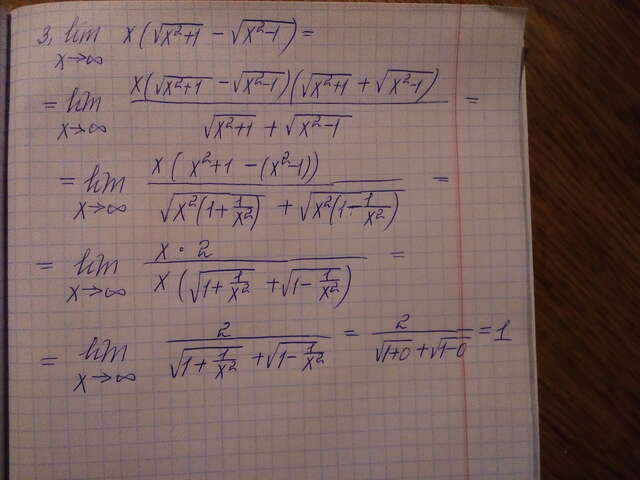 3. lim x→∞ x(√(x²+1) - √(x²-1)) =
= lim x→∞ x(√(x²+1) - √(x²-1))(√(x²+1) + √(x²-1)) / (√(x²+1) + √(x²-1)) =
= lim x→∞ x(x²+1-(x²-1)) / (√(x²(1+1/x²)) + √(x²(1-1/x²))) =
= lim x→∞ x·2 / (x(√(1+1/x²) + √(1-1/x²))) =
= lim x→∞ 2 / (√(1+1/x²) + √(1-1/x²)) = 2 / (√(1+0) + √(1-0)) = 1